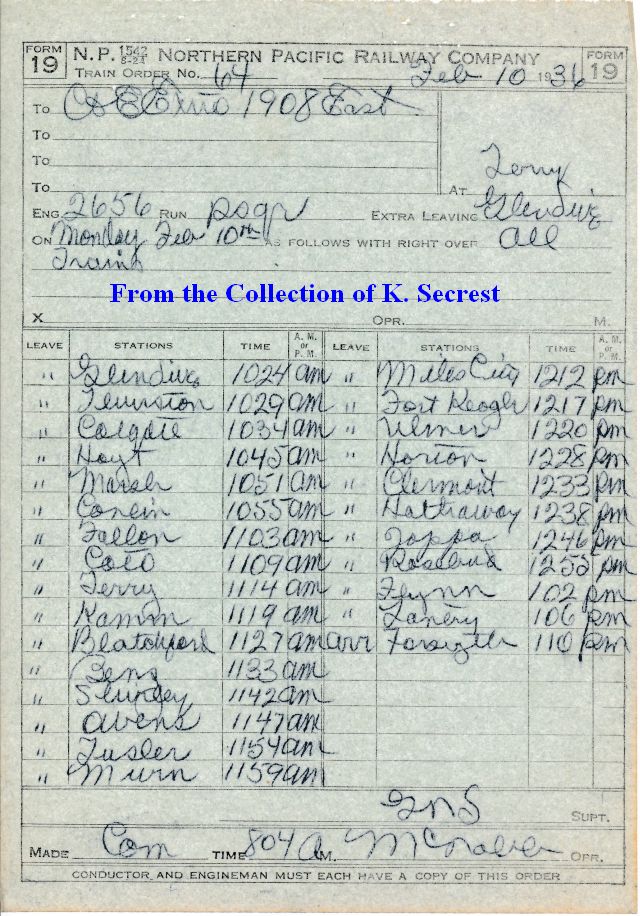 FORM 19 N.P. 1542 8-24 NORTHERN PACIFIC RAILWAY COMPANY FORM 19
TRAIN ORDER No. 64 Feb 10 1936
To C&E Extra 1908 East
To
To
To
AT Terry
ENG 2656 RUN psgr EXTRA LEAVING Glendive
ON Monday Feb 10th AS FOLLOWS WITH RIGHT OVER all
Trains
From the Collection of K. Secrest
X OPR. M.
LEAVE STATIONS TIME A. M. or P. M. LEAVE STATIONS TIME A. M. or P. M.
" Glendive 1024 am " Miles City 1212 pm
" 1029 am " Fort Keogh 1217 pm
" Colgate 1034 am " Ulmer 1220 pm
" Hoyt 1045 am " Horton 1228 pm
" Marsh 1051 am " Clermont 1233 pm
" Conlin 1055 am " Hathaway 1238 pm
" Fallon 1103 am " Joppa 1246 pm
" Coto 1109 am " Rosebud 1255 pm
" Terry 1114 am " Flynn 102 pm
" Kamm 1119 am " 106 pm
" Blatchford 1127 am arr Forsyth 110 pm
" Benz 1133 am
" Shirley 1142 am
" Avens 1147 am
" Tusler 1154 am
" Murn 1159 am
SUPT.
MADE Com TIME 804 A M. OPR.
CONDUCTOR AND ENGINEMAN MUST EACH HAVE A COPY OF THIS ORDER